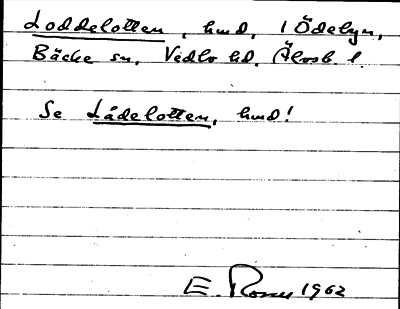 Loddelotten, hmd, i Ödelyn,
Bäcke sn, Vedbo hd. Älvsb. l.
Se Lådelotten, hmd!
E. Rosell 1962